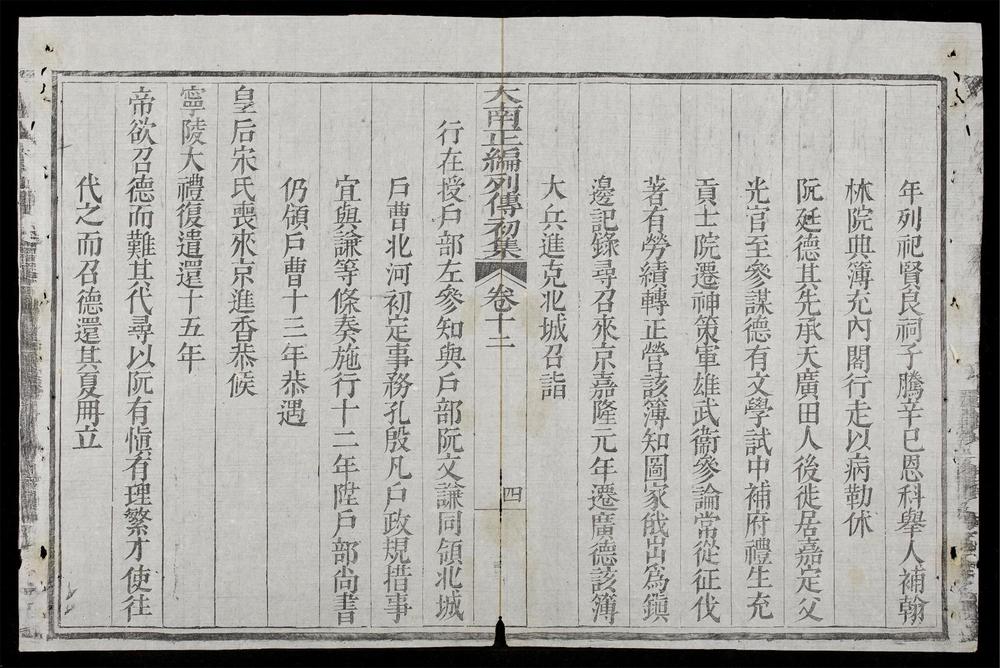 年列祀賢良祠子騰辛巳恩科舉人補翰
林院典簿充內閣行走以病勒休
阮廷德其先承天廣田人後徙居嘉定父
光官至參謀德有文學試中補府禮生充
貢士院遷神策軍雄武衞參論常從征伐
著有勞績轉正營該簿知圖家戗出爲鎭
邊記錄尋召來京嘉隆元年遷廣德該簿
大兵進克北城召詣
大南正編列傳初集 卷十二 四
行在授戶部左參知與戶部阮文謙同領北城
戶曹北河初定事務孔殷凡戶政規措事
宜與謙等條奏施行十二年陞戶部尙書
仍領戶曹十三年恭遇
皇后宋氏喪來京進香恭候
寧陵大禮復遣還十五年
帝欲召德而難其代尋以阮有愼有理繁才使往
代之而召德還其夏冊立